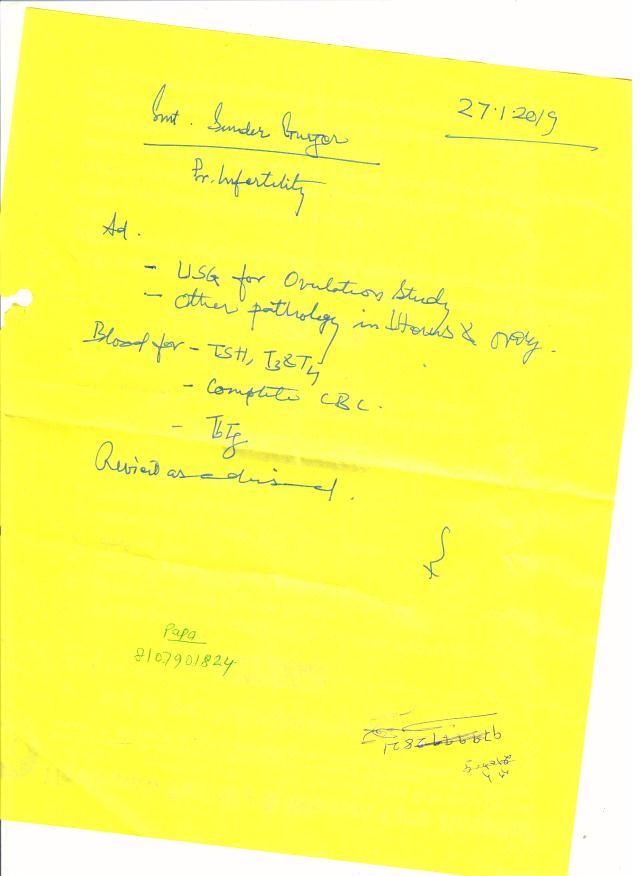 27.1.2019
Smt. Sunder Gurjar
Pr. Infertility
Ad.
- USG for Ovulation Study
- Other pathology in Uterus & ovary.
Blood for - TSH, T3 & T4
- Complete CBC.
-
Revisit as advised.
Papa
8107901824